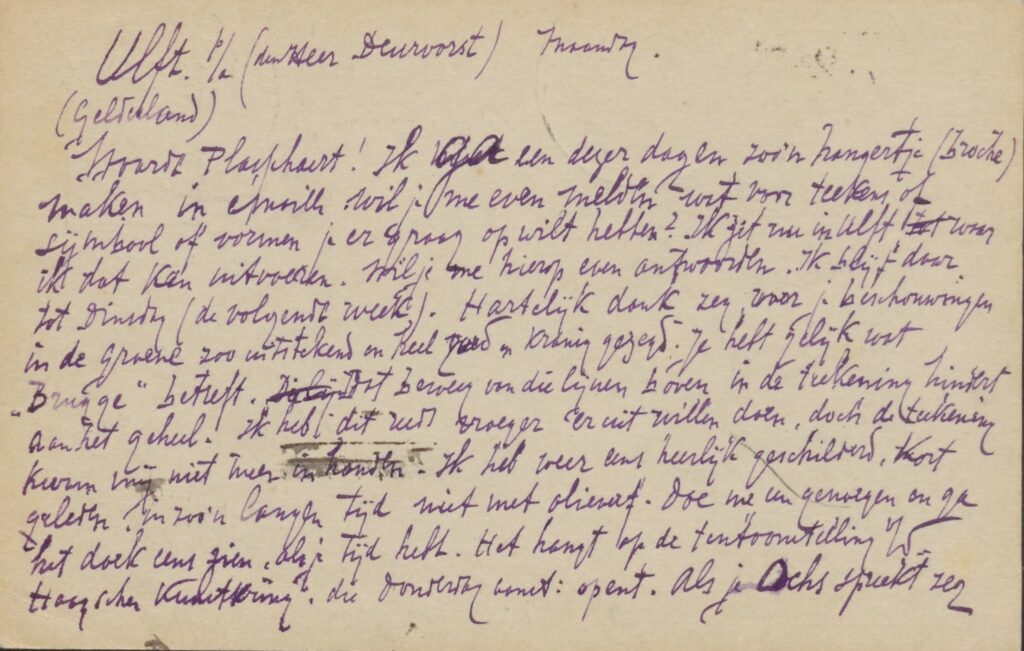 Ulft. p/a (den Heer Deurvorst) Maandag.
(Gelderland)
Waarde Plasschaert! Ik ga een dezer dagen zoo'n hangertje (broche)
maken in émaille wil je me even melden wat voor teekens of
symbool of vormen je er graag op wilt hebben? Ik zit nu in Ulft waar
ik dat kan uitvoeren. Wil je me hierop even antwoorden. Ik blijf daar
tot Dinsdag (de volgende week). Hartelijk dank zeg voor je beschouwingen
in de Groene zoo uitstekend en heel kranig gezegd. Je hebt gelijk wat
"Brugge" betreft. Dat beweeg van die lijnen boven in de teekening hindert
aan het geheel. Ik heb dit reeds vroeger er uit willen doen, doch de teekening
kwam mij niet meer in handen. Ik heb weer eens heerlijk geschilderd, kort
geleden! In zoo'n langen tijd niet met olieverf. Doe me een genoegen en ga
het doek eens zien, als je tijd hebt. Het hangt op de tentoonstelling
Haagschen Kunstkring. die Donderdag aanst: opent. Als je Ochs spreekt zeg